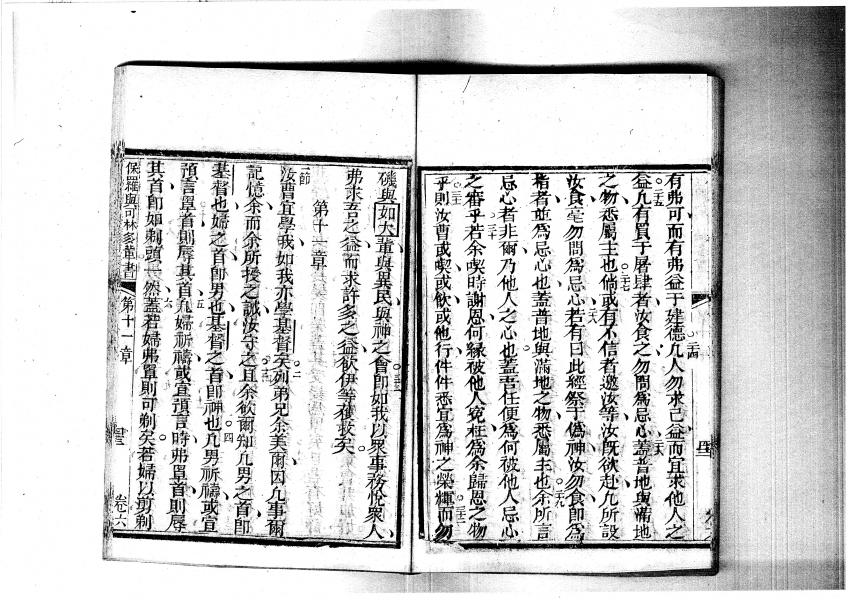 有弗可而有弗益于建德凡人勿求己益而宜求他人之
益凡有買于屠肆者汝食之勿問為忌心蓋普地與滿地
之物悉屬主也倘或有不信者邀汝等汝既欲赴凡所設
汝食毫勿問為忌心若有曰此經祭于偽神汝勿食即為
指者並為忌心也蓋普地與滿地之物悉屬主也余所言
忌心者非爾乃他人之心也蓋吾任便為何被他人忌心
之審乎若余喫時謝恩何緣被他人冤枉為余歸恩之物
乎則汝曹或喫或飲或他行件件悉宜為神之榮輝而勿
礙與如大輩與異民與神之會即如我以眾事務悅眾人
弗求吾之益而求許多之益欲伊等獲救矣
第十一章
一節
汝曹宜學我如我亦學基督矣列弟兄余美爾因凡事爾
記憶余而余所授之誡汝守之且余欲爾知凡男之首即
基督也婦之首即男也基督之首即神也凡男祈禱或宣
預言單首則辱其首凡婦祈禱或宣預言時弗單首則辱
其首即如剃頭一然蓋若婦弗單則可剃矣若婦以剪剃
保羅與可林多輩書 第十一章 卷六